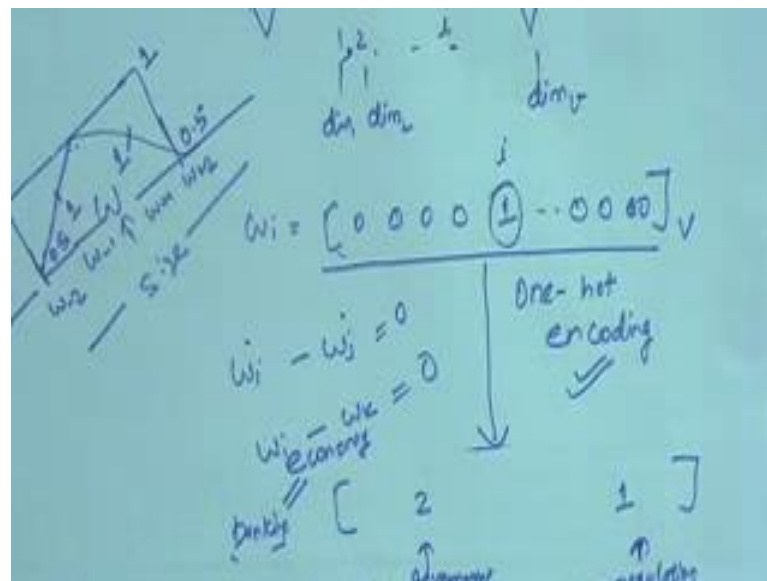 V V
1 2 . . .
dim1 dim2 dimV
1
0.5
1 1
0.5 W
w-2 w-1 w+1 w+2
size
i
wi = [ 0 0 0 0 1 -- 0 0 00 ] V
One-hot
encoding
wi - wj = 0
wi - wk = 0
economy
banking
[ 2 1 ]